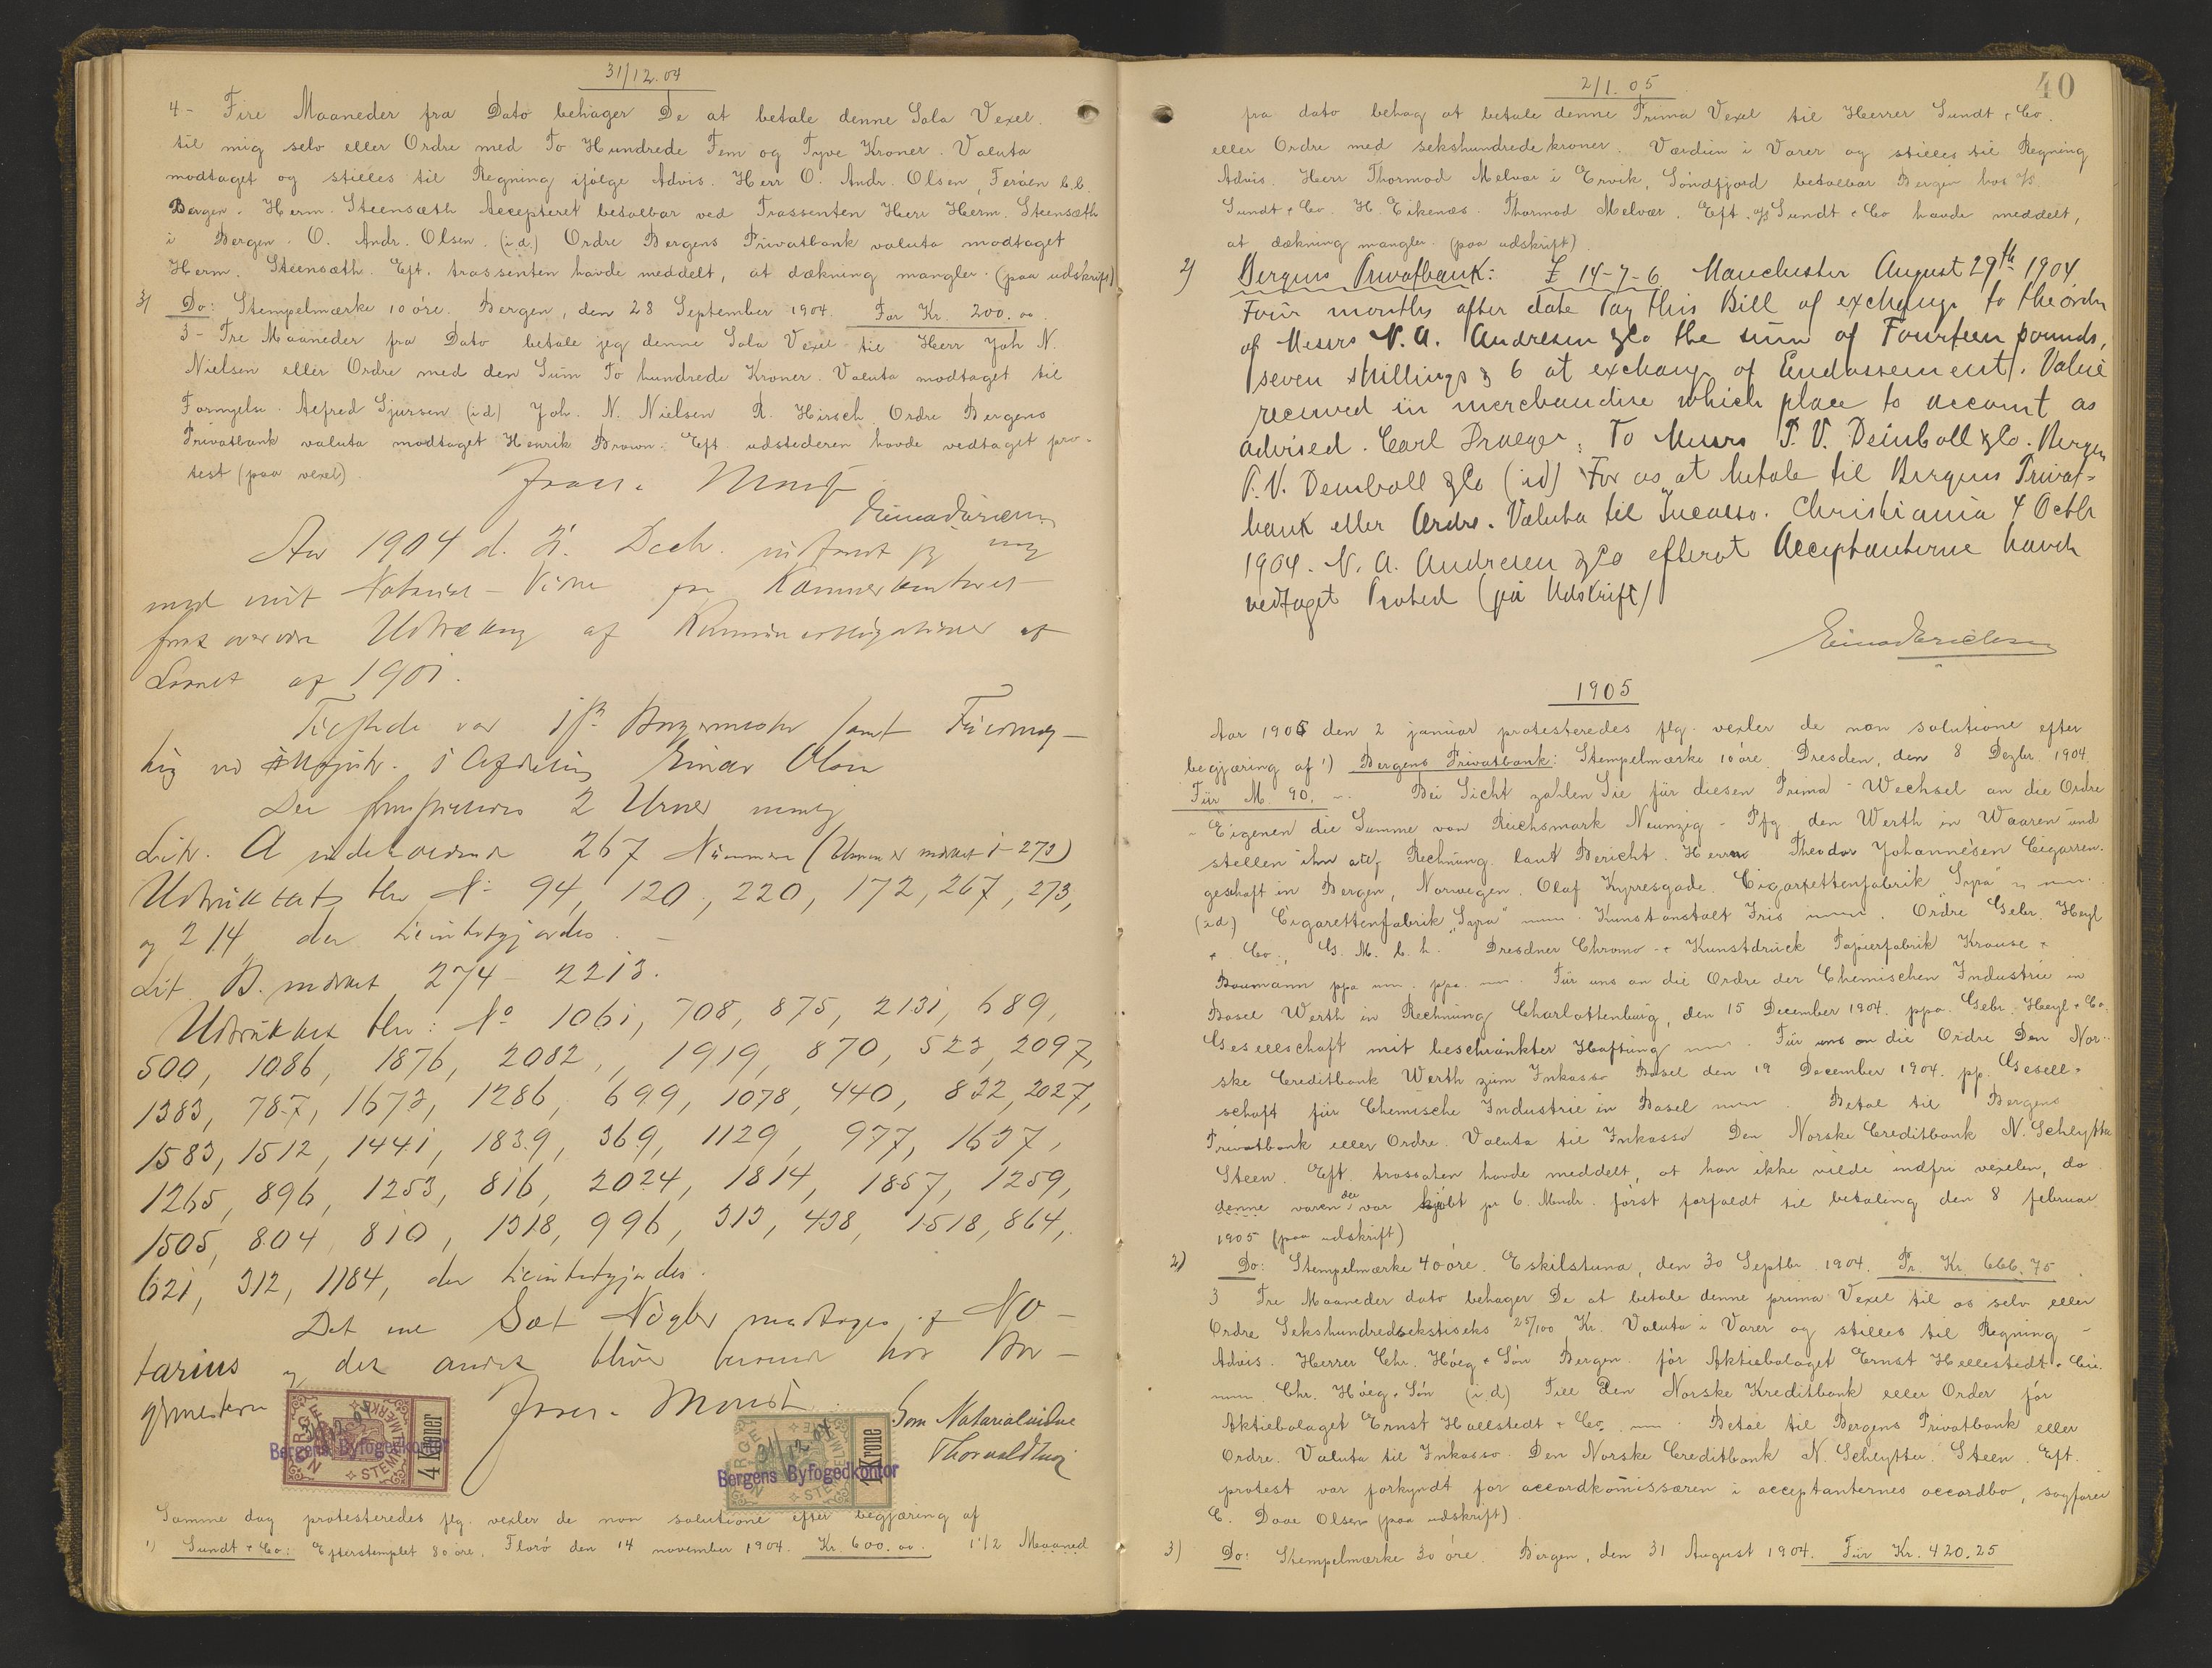 31/12.04
4 - Fire Maaneder fra Dato behager De at betale denne Sola Vexel.
til mig selv eller Ordre med To Hundrede Fem og Tyve Kroner. Valuta
modtaget og stilles til Regning ifølge Advis. Herr O. Andr. Olsen,
Bergen. Herm. Steensæth Accepteret betalbar ved Trassenten Herr Herm. Steensæth
i Bergen. O. Andr. Olsen. (i.d.) Ordre Bergens Privatbank valuta modtaget
Herm. Steensæth. Eft. trassenten havde meddelt, at dækning mangler. (paa udskrift)
3) Do: Stempelmærke 10 øre. Bergen, den 28 September 1904. For Kr. 200.00
3 - Tre Maaneder fra Dato betale jeg denne Sola Vexel til Herr Joh N.
Nielsen eller Ordre med den Sum To hundrede Kroner. Valuta modtaget til
Fornyelse. Alfred Gjersen (id) Joh. N. Nielsen R. Hirsch Ordre Bergens
Privatbank valuta modtaget Henrik Brown. Eft. udstederen havde vedtaget pro-
test (paa vexel).
Aar 1904 d. 31. Decb. indfandt jeg mig
med mit Notarial-Vidne paa Kæmnerkontoret
for at overvære Udtrækning af Kommuneobligationer af
Laanet af 1901.
Tilstede var Borgermester samt Fuldmæg-
tig ved Magistr. 1 Afdeling Einar Olsen
Der 2 Urner nemlig
Litr. A indeholdende 267 Nummere (Urnen er mærket 1-273)
Udtrukket blev No 94, 120, 220, 172, 267, 273,
og 214 der
Lit. B. mærket 274 - 2213.
Udtrukket blev: No 1061, 708, 875, 2131, 689,
500, 1086, 1876, 2082, 1919, 870, 523, 2097,
1383, 787, 1673, 1286, 699, 1078, 440, 822, 2027,
1583, 1512, 1441, 1839, 369, 1129, 977, 1637,
1265, 896, 1253, 816, 2024, 1814, 1857, 1259,
1505, 804, 810, 1318, 996, 313, 438, 1518, 864,
621, 312, 1184, der
Det ene Sæt Nøgler modtoges af No-
tarius og det andet blev beroende hos Bor-
germesteren
Som Notarialvidne
NORGE STEMPELMÆRKE 4 Kroner
31/12 04
Bergens Byfogedkontor
NORGE STEMPELMÆRKE 1 Krone
31/12 04
Bergens Byfogedkontor
Samme dag protesteredes flg. vexler de non solutione efter begjæring af
1) Sundt & Co.: Efterstemplet 80 øre. Florø den 14 november 1904. Kr. 600.00. 1 1/2 Maaned
40
2/1. 05
fra dato behag at betale denne Prima Vexel til Herrer Sundt & Co.
eller Ordre med sekshundrede kroner. Værdien i Varer og stilles til Regning
Advis. Herr Thormod Melvær i Ervik, Søndfjord betalbar Bergen hos
Sundt & Co. H. Eikenæs. Thormod Melvær. Eft. Sundt & Co havde meddelt,
at dækning mangler. (paa udskrift).
2) Bergens Privatbank: £ 14-7-6 Manchester August 29th 1904
Four months after date Pay this Bill of exchange to the order
of Messrs N. A. Andresen & Co the sum of Fourteen pounds,
seven shillings & 6 at exchange of Endossement. Value
received in merchandise which place to account as
advised. Carl Praeger. To Messrs P. V. Deinboll & Co. Bergen
P. V. Deinboll & Co (id) For os at betale til Bergens Privat-
bank eller Ordre. Valuta til Incasso. Christiania 4 Octbr
1904. N. A. Andresen & Co efterat Acceptanterne havde
vedtaget Protest (på Udskrift)
1905
Aar 1905 den 2 januar protesteredes flg. vexler de non solutione efter
begjæring af 1) Bergens Privatbank: Stempelmærke 10 øre. Dresden, den 8 Dezbr. 1904.
Für M. 90. - Bei Sicht zahlen Sie für diesen Prima - Wechsel an die Ordre
- Eigenen die Summe von Reichsmark Neunzig - Pfg den Werth in Waaren und
stellen ihn auf Rechnung laut Bericht. Herrn Theodor Johannesen Cigarren-
geschaft in Bergen, Norwegen. Olaf Kyrresgade. Cigarettenfabrik
(i.d.) Cigarettenfabrik Kunstanstalt Iris Ordre Gebr. Heyl
& Co., G. M. b. h. Dresdner Chromo - & Kunstdruck Papierfabrik Krause &
Baumann ppa ppa. Für uns an die Ordre der Chemischen Industrie in
Basel Werth in Rechnung Charlottenburg, den 15 December 1904. ppa. Gebr. Heyl & Co.
Gesellschaft mit beschränkter Haftung Für uns an die Ordre Den Nor-
ske Creditbank Werth zum Inkasso Basel den 19 December 1904. pp. Gesell-
schaft für Chemische Industrie in Basel Betal til Bergens
Privatbank eller Ordre. Valuta til Inkasso Den Norske Creditbank N. Schlytter
Steen. Eft. trassaten havde meddelt, at han ikke vilde indfri vexelen, da
denne varen der var kjøbt pr 6. Mndr. først forfaldt til betaling den 8 februar
1905 (paa udskrift)
2) Do: Stempelmærke 40 øre. Eskilstuna, den 30 Septbr. 1904. Pr. Kr. 666.75
3 Tre Maaneder dato behager De at betale denne prima Vexel til os selv eller
Ordre Sekshundredsekstiseks 25/100 Kr. Valuta i Varer og stilles til Regning -
Advis. Herrer Chr. Høeg & Søn Bergen. för Aktiebolaget Ernst Hellestedt & Cie.
Chr. Høeg & Søn (i.d.) Till Den Norske Kreditbank eller Order för
Aktiebolaget Ernst Hallstedt & Co. Betal til Bergens Privatbank eller
Ordre. Valuta til Inkasso. Den Norske Creditbank N. Schlytter. Steen. Eft.
protest var forkyndt for accordkomissæren i acceptanternes accordbo, sagfører
C. Daae Olsen (paa udskrift).
3) Do: Stempelmærke 30 øre. Bergen, den 31 August 1904. Für Kr. 420.25